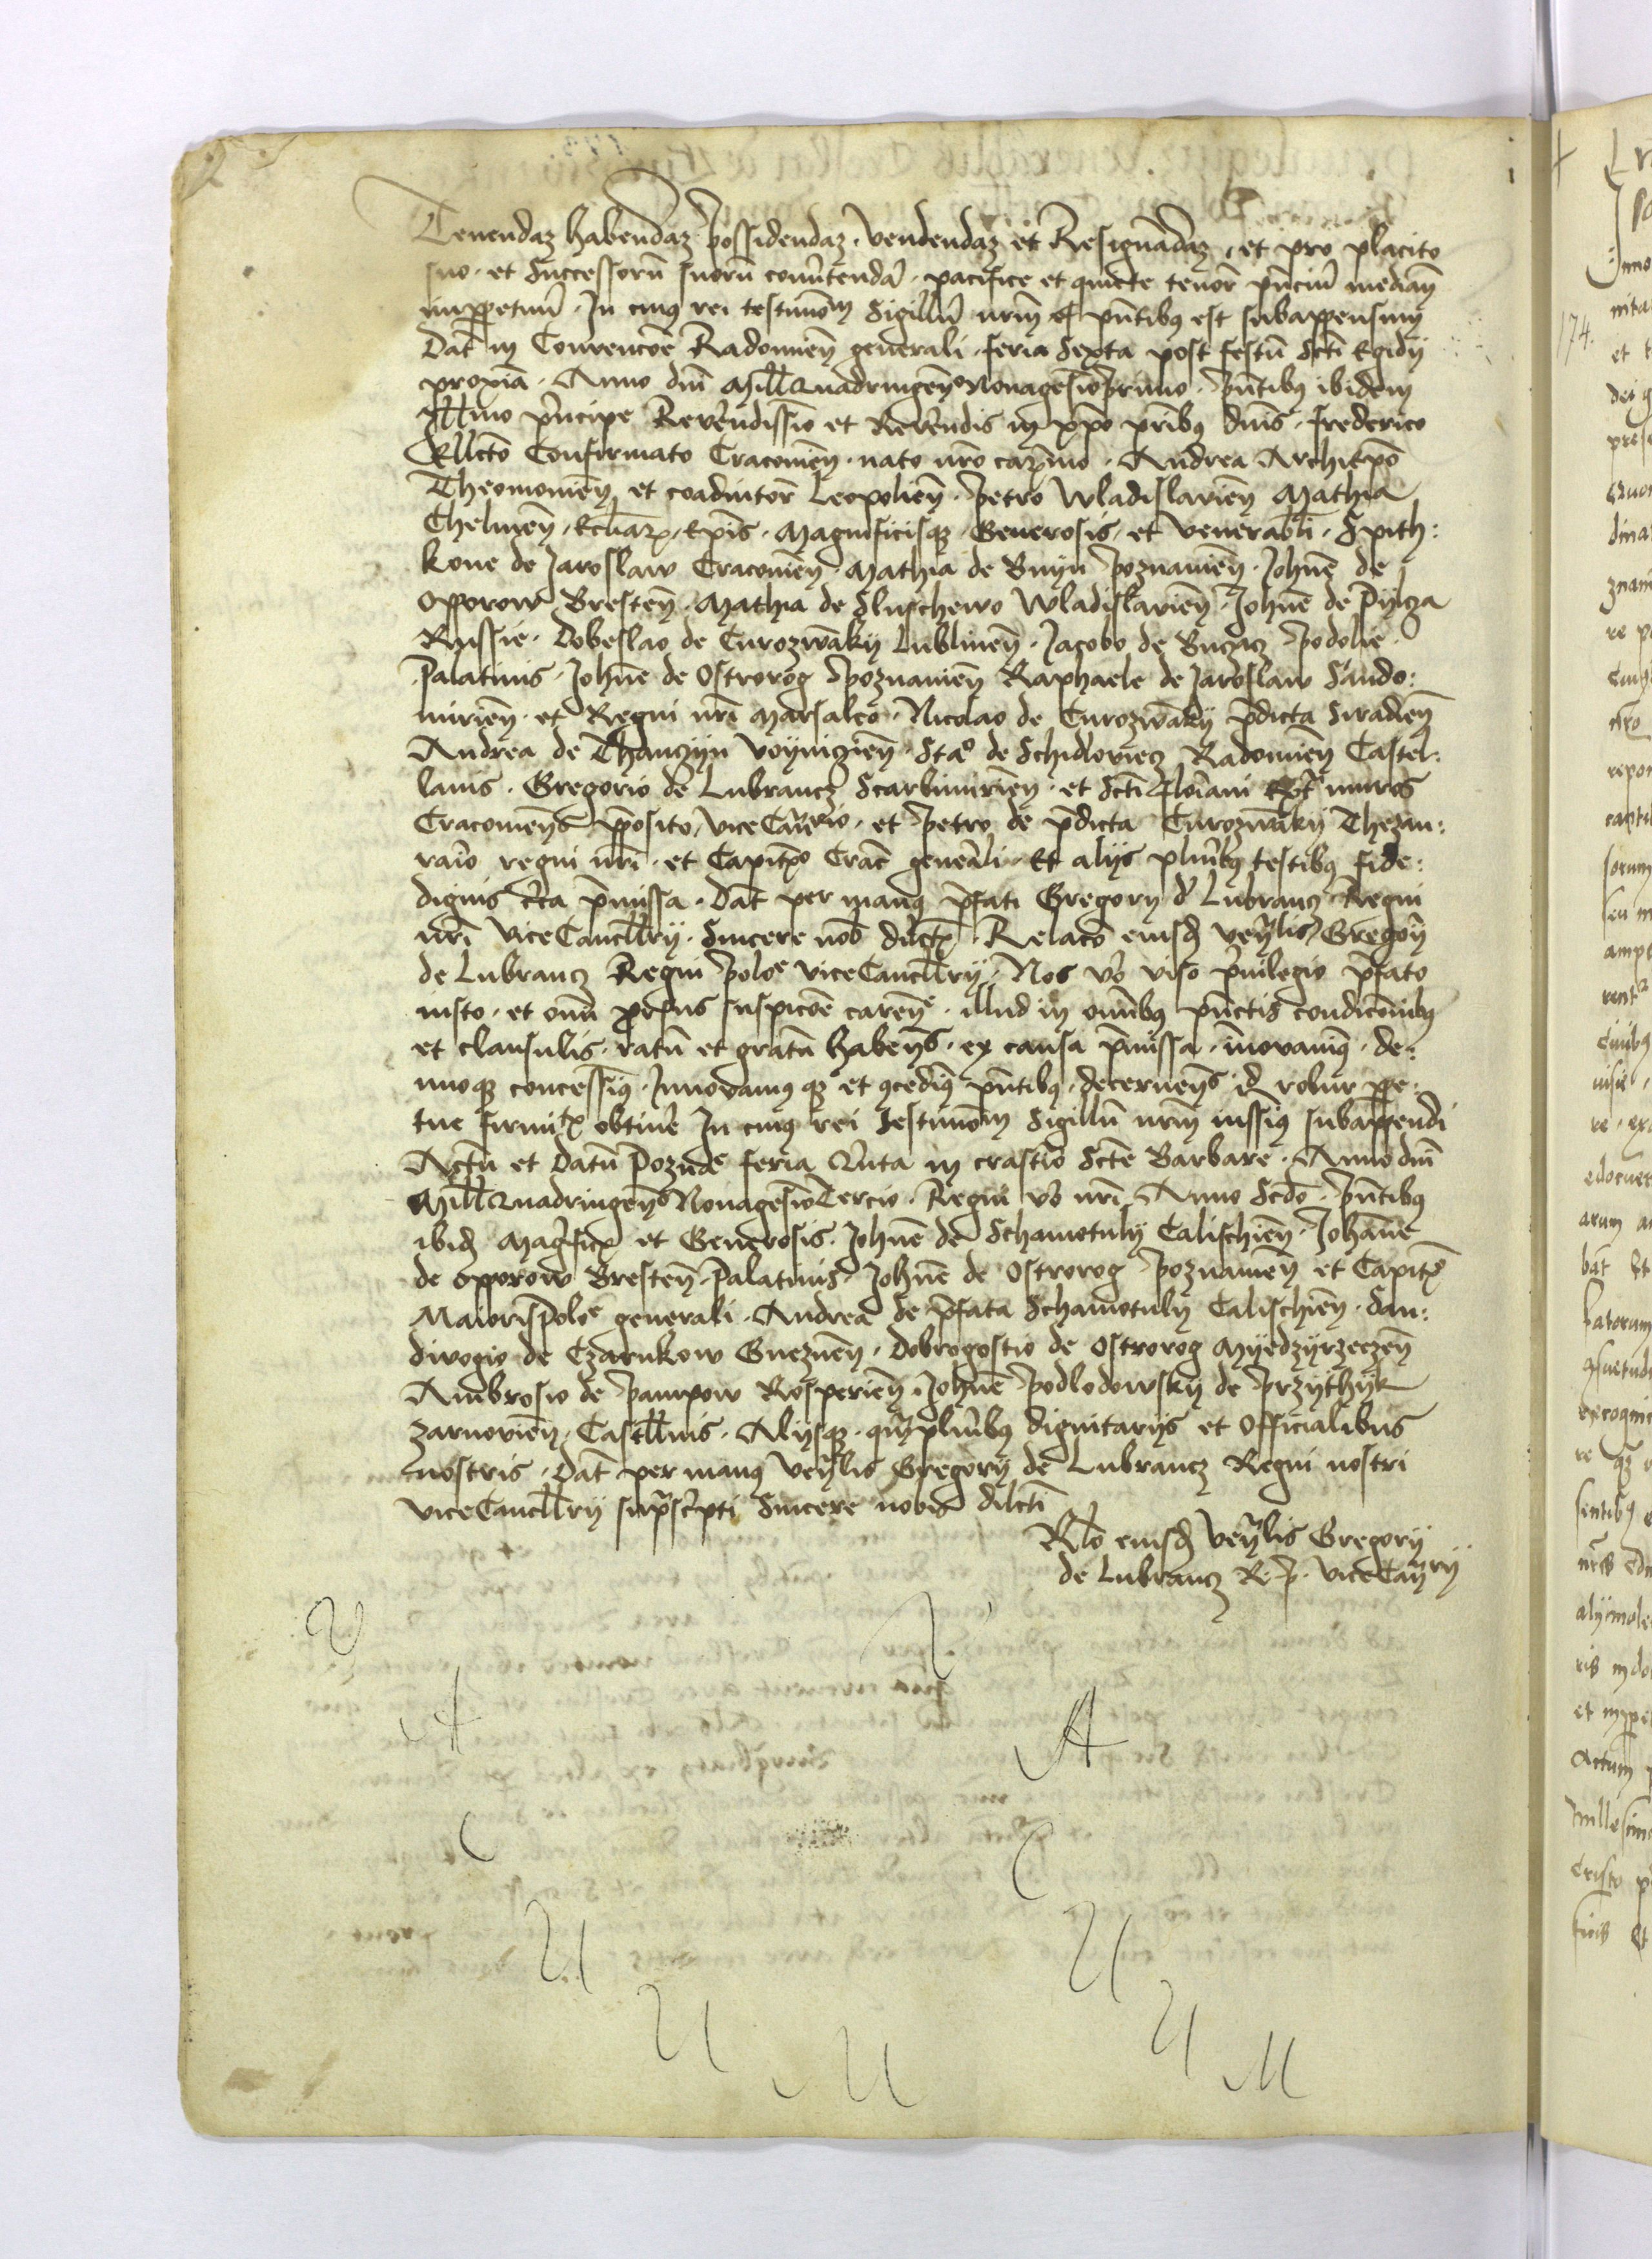 Tenendaz habendaz possidendaz vendendaz et Resignādaz et pro placito
suo et Successorū suorū cōūtendā pacifice et quiete tenor̄ pn̄ciū median̄
inppetuū In cuiꝰ rei testimoīm Sigillū nrm̄ pn̄tibꝰ est subappensum
Dat̄ in Convencōe Radomien̄ generali feria Sexta post festū Scti Egidij
proxīa Anno dnī MillQuadringen̄oNonagesīoprimo pn̄tibꝰ ibidem
Illmo prīcipe Reverendissīo et Reverendis in xp̄o prībꝰ dnīs frederico
Ellcto Confirmato Cracovien̄ nato nrō carimo Andrea Archiepō
Theomonien̄ et coadiutor̄ Leopolien̄ Petro Wladislavien̄ Mathia
Chelmen̄ Ecclīaꝝ Epīs Magnificisqꝫ Generosis et Venerabli Spith:
kone de Jaroslaw Cracovien̄ Mathia de Bnyn Poznanien̄ Johnē de
Opporow Bresten̄ Mathia de Sluschewo Wladislavien̄ Johnē de Pylcza
Russie Dobeslao de Curozwāky Lublinen̄ Jacobo de Buczacz Podolie
Palatinis Johnē de Ostrorog Poznanien̄ Raphaele de Jaroslaw Sando:
mirien̄ et Regni nrī Marsalco Nicolao de Curozwāky pdicta Siradien̄
Andrea de Thanczyn Voynicien̄ Stao de Schidloviecz Radomien̄ Castel:
lanis Gregorio de Lubrancz Scarbimirien̄ et Scti floriani ext̄ muros
Cracovien̄s pposito viceCan̄rio et Petro de pdicta Curozwāky Thezau:
rario regni nrī et Capit̄o Crac̄ genēali Et alijs pluribꝰ testibꝰ fide:
dignis c̄ca pmissa Dat̄ per manꝰ pfati Gregorij d Lubrancz Regni
nrī ViceCancllrij Sincere nob dilcti Relacō eiusd venlis Gregorij
de Lubrancz Regni Poloe viceCancllrij Nos vo viso prīvilegio pfato
iusto et omī prorsus suspicōe caren̄e illud in omībꝰ punctis condicōnibꝰ
et clausulis ratū et gratū haben̄s ex causa pmissa innovaviꝰ de:
nuoqꝫ concessiꝰ Innovamꝰqꝫ et ꝯcediꝰ pn̄tibꝰ decernen̄s id robur ppe:
tue firmit̄ obtinēe In cuiꝰ rei Testimoīm Sigillū nrm̄ iussiꝰ subappendi
Actū et Datū Poznāe feria Qīnta in crastīo Scte Barbare Anno dnī
MillQuadringen̄oNonagesīoTercio Regni vo nrī Anno Scdo pn̄tibꝰ
ibid Magnficis et Generosis Johnē de Schamotuly Calischien̄ Johāne
de Opporow Bresten̄ Palatinis Johnē de Ostrorog Poznanien̄ et Capit̄o
MaiorisPoloe generali Andrea de pfata Schamotuly Calischien̄ San:
divogio de Czarnkow Gneznen̄ Dobrogostio de Ostrorog Myedzyrzeczen̄
Ambrosio de Pampow Rosperien̄ Johnē Podlodowsky de Przythyk
Zarnovien̄ Castllnis Alijsqꝫ qm̄ pluribꝰ dignitarijs et Officialibus
nostris Dat̄ per manꝰ venlis Gregorij de Lubrancz Regni nostri
viceCancllrij suprascripti Sincere nobis dilcti
Rlo eiusd Venlis Gregorij
de Lubrancz R. P. viceCan̄rij
174.